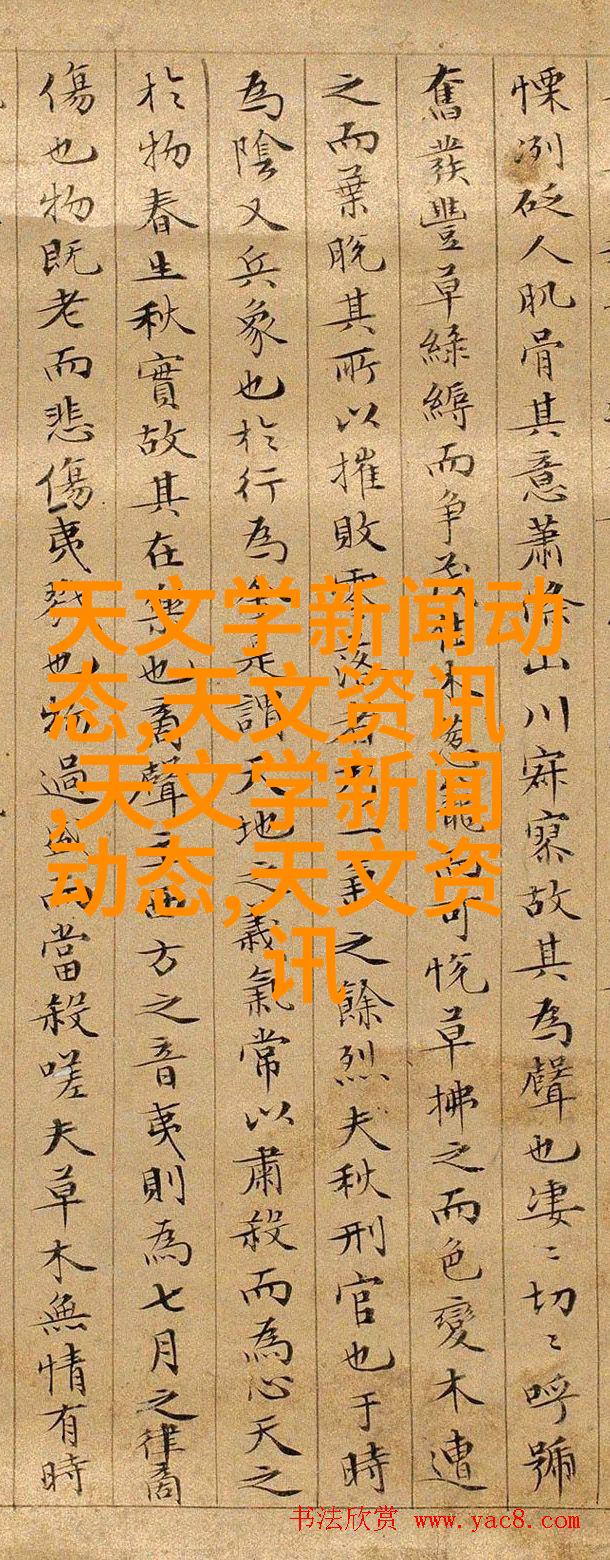 慄冽砭人肌骨其意蕭條山川寂寥故其為聲也凄〻切〻呼號
奮發豐草綠縟而争茂佳木葱籠而可悅草拂之而色變木遭
之而葉脫其所以摧敗零落者乃一氣之餘烈夫秋刑官也于時
為陰又兵象也於行為金是謂天地之義氣常以肅殺而為心天之
於物春生秋實故其在樂也商聲主西方之音夷則為七月之律商
傷也物既老而悲傷夷戮也物過盛而當殺嗟夫草木無情有時
天文学新闻动
态,天文资讯
,天文学新闻
动态,天文资
讯
书法欣赏 www.yac8.com